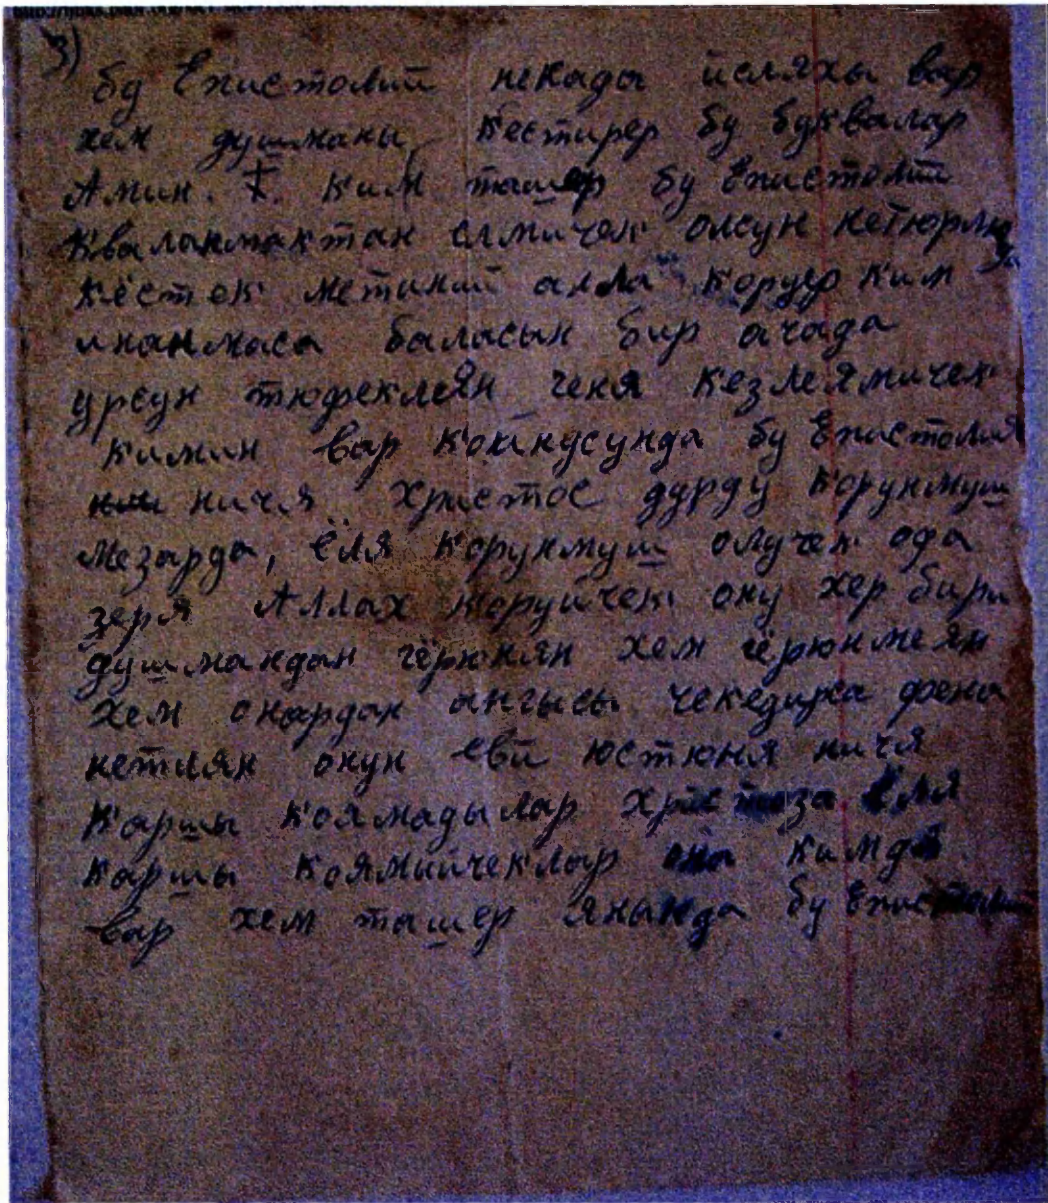 3)
бу Епистолий некады йсляхы вар
хем душманы, Кестирер бу буквалар
Амин. Ким ташер бу Епистолий
Кваланмактан елмичек олсун кетюрлю
Кёстек метиний алла Коруер Ким
инанмаса баласын бир ачада
урсун тюфеклеян геня Кезлеямичек
Кимин вар Койнусунда бу Епистолия
ничя Христос дурду Корунмуш
мезарда, ёля Корунмуш олучек ода
зеря Аллах Коруйчек ону хер бири
душмандан гёрюнян хем гёрюнмеян
хем онардан ангысы чекедирса фена
нетлян онун еви юстюня ничя
Каршы Коямадылар Христоза ёля
Каршы Коямыйчеклар она кимда
вар хем ташер янында бу Епистолий